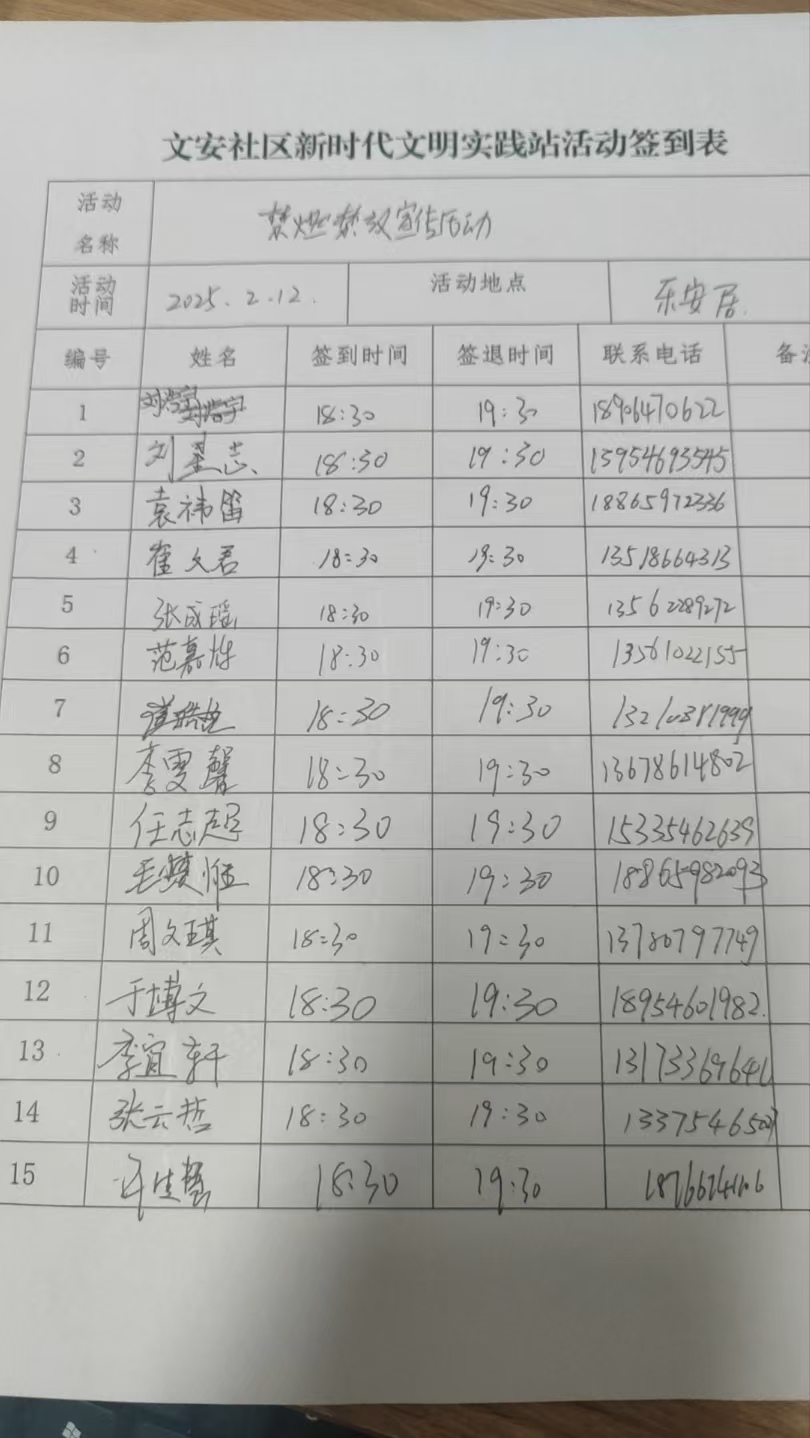 文安社区新时代文明实践站活动签到表
活动名称 禁燃禁放宣传活动
活动时间 2025.2.12. 活动地点 乐安居
编号 姓名 签到时间 签退时间 联系电话 备
1 刘浩宇 18:30 19:30 18906470622
2 刘星志 18:30 19:30 15954693545
3 袁祎笛 18:30 19:30 18865972336
4 崔文君 18:30 19:30 13518664313
5 张成瑶 18:30 19:30 13562289272
6 范嘉烨 18:30 19:30 13561022155
7 18:30 19:30 13210381999
8 李雯馨 18:30 19:30 13678614802
9 任志超 18:30 19:30 15335462639
10 18:30 19:30 18865982093
11 周文琪 18:30 19:30 13780797749
12 于博文 18:30 19:30 18954601982.
13 李宜轩 18:30 19:30
14 张云哲 18:30 19:30
15 18:30 19:30